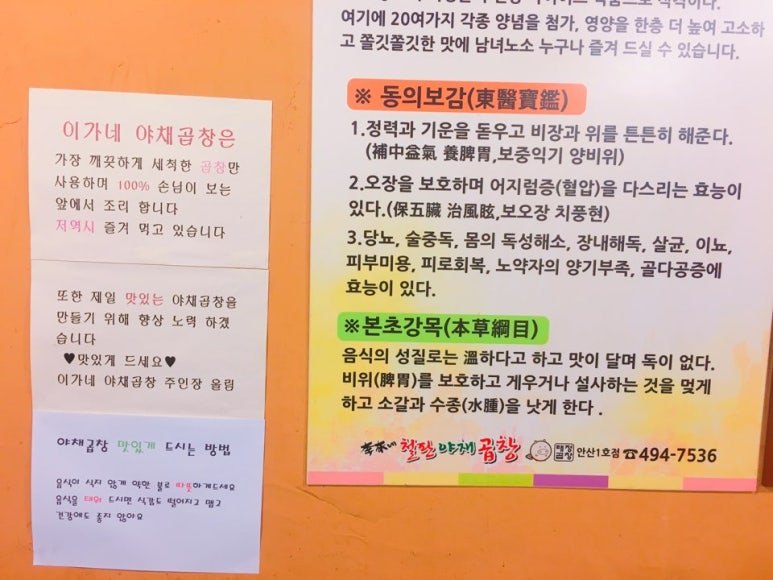 이가네 야채곱창은
가장 깨끗하게 세척한 곱창만
사용하며 100% 손님이 보는
앞에서 조리 합니다
저역시 즐겨 먹고 있습니다
또한 제일 맛있는 야채곱창을
만들기 위해 향상 노력 하겠
습니다
♥맛있게 드세요♥
이가네 야채곱창 주인장 올림
야채곱창 맛있게 드시는 방법
음식이 식지 않게 약한 불로 따뜻하게드세요
음식을 태워 드시면 식감도 떨어지고 맵고
건강에도 좋지 않아요
여기에 20여가지 각종 양념을 첨가, 영양을 한층 더 높여 고소하
고 쫄깃쫄깃한 맛에 남녀노소 누구나 즐겨 드실 수 있습니다.
※ 동의보감(東醫寶鑑)
1.정력과 기운을 돋우고 비장과 위를 튼튼히 해준다.
(補中益氣 養脾胃,보중익기 양비위)
2.오장을 보호하며 어지럼증(혈압)을 다스리는 효능이
있다.(保五臟 治風眩,보오장 치풍현)
3.당뇨, 술중독, 몸의 독성해소, 장내해독, 살균, 이뇨,
피부미용, 피로회복, 노약자의 양기부족, 골다공증에
효능이 있다.
※본초강목(本草綱目)
음식의 성질로는 溫하다고 하고 맛이 달며 독이 없다.
비위(脾胃)를 보호하고 게우거나 설사하는 것을 멎게
하고 소갈과 수종(水腫)을 낫게 한다 .
철판야채곱창 안산1호점 ☎494-7536